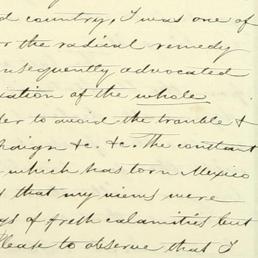 d country, I was one of
r the radical remedy
nsequently advocated
iation of the whole
der to avoid the trouble &
paign &c. &c. The constant
which has torn Mexico
that my views were
ys of fresh calamities but
to observe that I